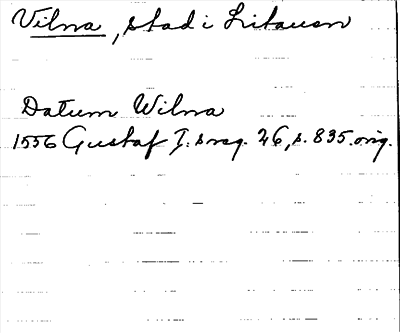 Vilna, stad i Litauen
Datum Wilna
1556 Gustaf I. s reg. 26, s. 835. orig.